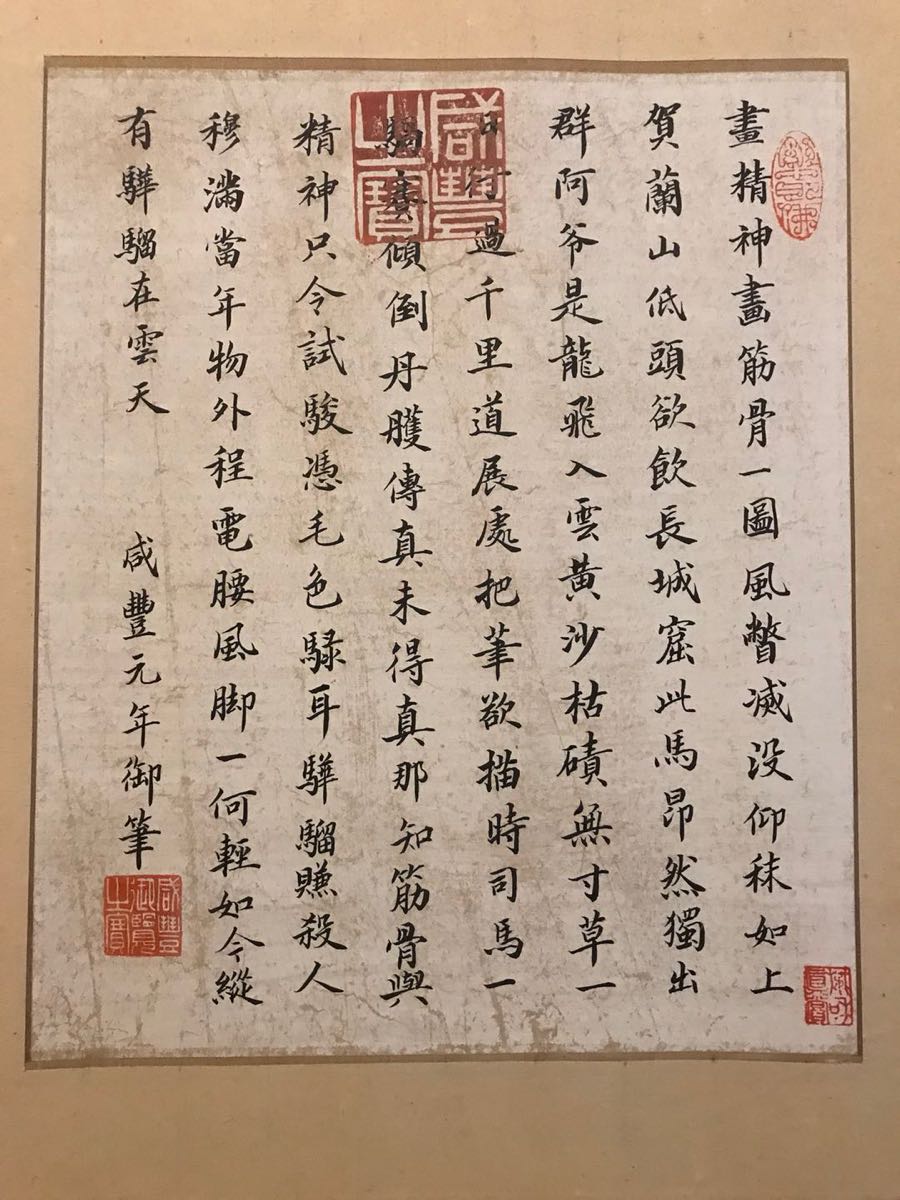 畫精神畫筋骨一圖風瞥滅没仰秣如上
賀蘭山低頭欲飲長城窟此馬昂然獨出
群阿爷是龍飛入雲黄沙枯磧無寸草一
日行過千里道展處把筆欲描時司馬一
騧賽傾倒丹雘傳真未得真那知筋骨與
精神只今試駿憑毛色騄耳驊騮賺殺人
穆滿當年物外程電腰風脚一何輕如今縱
有驊騮在雲天
咸豐元年御筆
咸豐之寶
咸豐御覽之寶